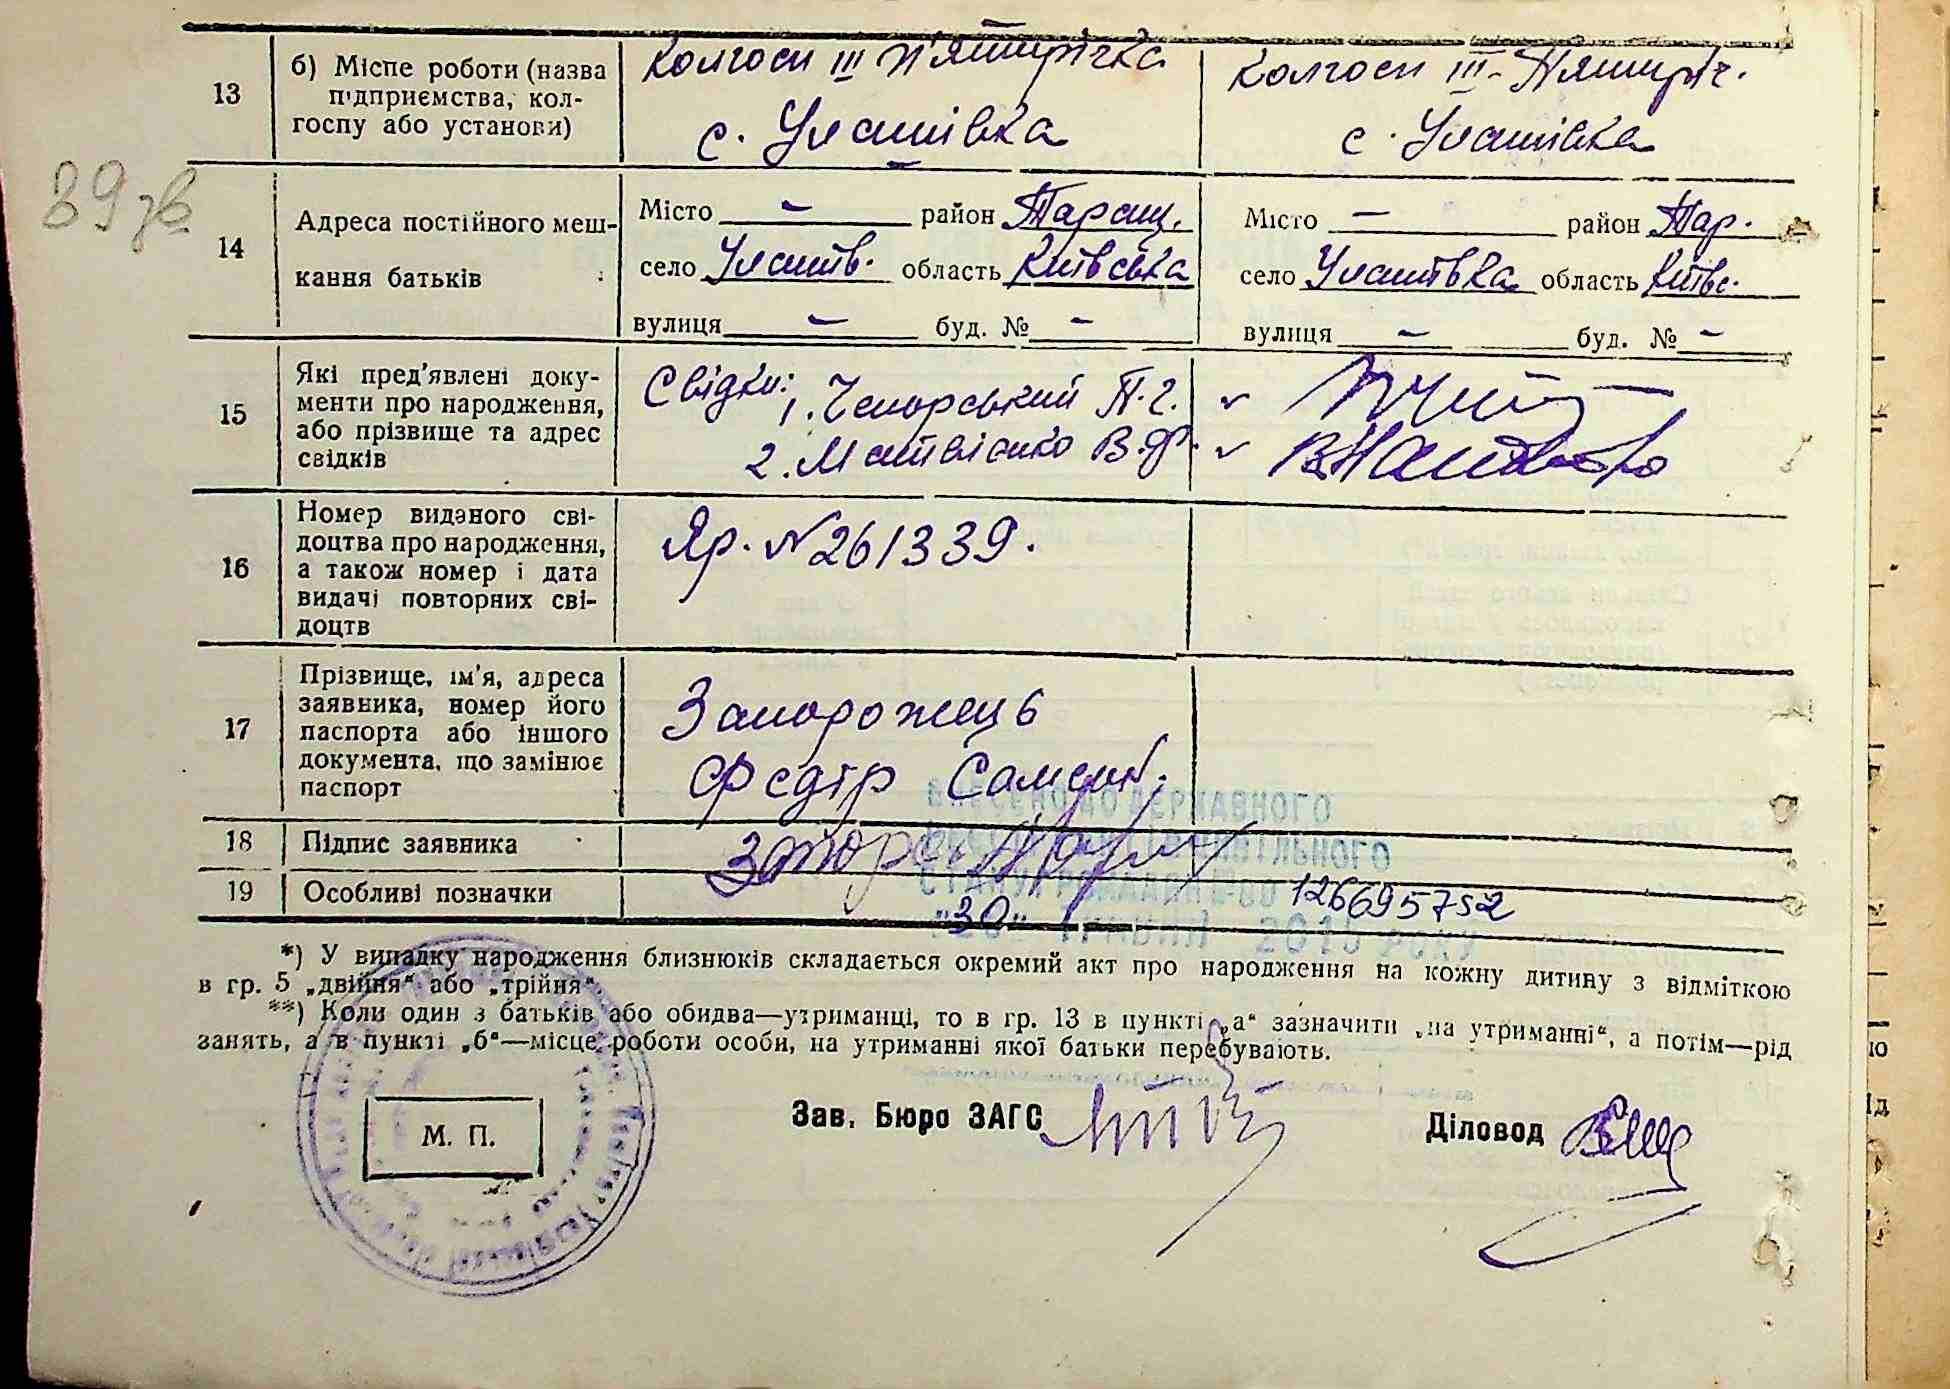 13
б) Місце роботи (назва
підприємства, кол-
госпу або установи)
Колгосп III П'ятирічка
с. Улашівка
Колгосп III-Пятиріч.
с. Улашівка
39 зв
14
Адреса постійного меш-
кання батьків
Місто — район Таращ.
село Улашів. область Київська
вулиця — буд. № —
Місто — район Тар.
село Улашівка область Київс.
вулиця — буд. № —
15
Які пред'явлені доку-
менти про народження,
або прізвище та адрес
свідків
Свідки: 1. Чепорський П. Г.
2. Матвієнко В. Ф.
16
Номер виданого сві-
доцтва про народження,
а також номер і дата
видачі повторних сві-
доцтв
Яр. №261339.
17
Прізвище, ім'я, адреса
заявника, номер його
паспорта або іншого
документа, що замінює
паспорт
Запорожець
Федір Самсон.
18
Підпис заявника
19
Особливі позначки
ВНЕСЕНО ДО ДЕРЖАВНОГО
РЕЄСТРУ АКТІВ ЦИВІЛЬНОГО
СТАНУ ГРОМАДЯН ЗА №
126695752
"30" ТРАВНЯ 2013 РОКУ
*) У випадку народження близнюків складається окремий акт про народження на кожну дитину з відміткою
в гр. 5 „двійня“ або „трійня“.
**) Коли один з батьків або обидва—утриманці, то в гр. 13 в пункті „а“ зазначити „на утриманні“, а потім—рід
занять, а в пункті „б“—місце роботи особи, на утриманні якої батьки перебувають.
М. П.
Зав. Бюро ЗАГС
Діловод